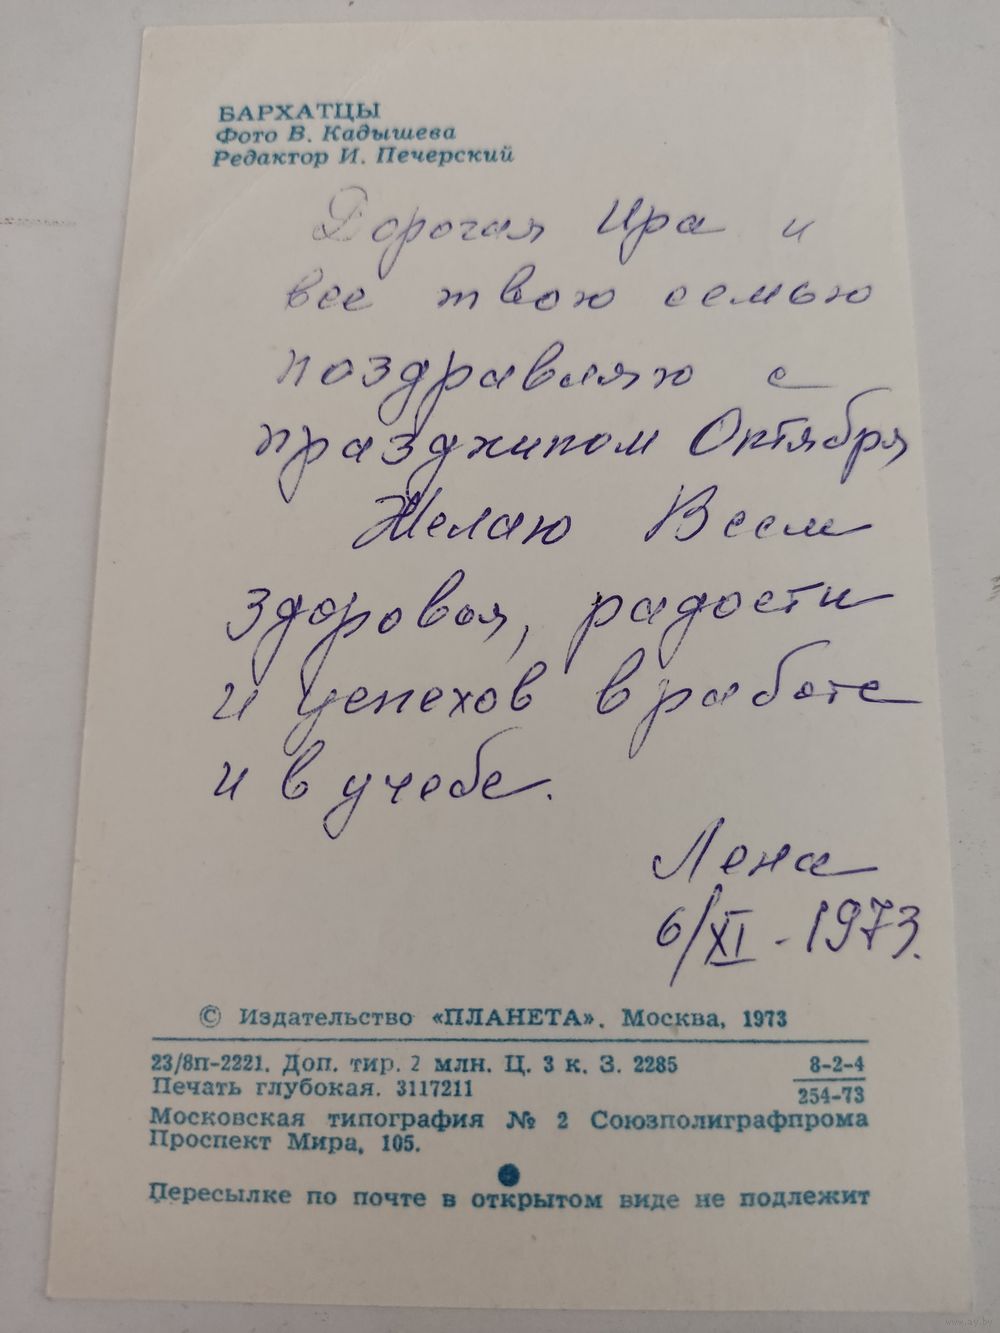 БАРХАТЦЫ
Фото В. Кадышева
Редактор И. Печерский
Дорогая Ира и
все твою семью
поздравляю с
праздником Октября
Желаю Всем
здоровья, радости
и успехов в работе
и в учебе.
Лена
6/XI - 1973.
© Издательство «ПЛАНЕТА». Москва, 1973
23/8п-2221. Доп. тир. 2 млн. Ц. 3 к. З. 2285
8-2-4
Печать глубокая. 3117211
254-73
Московская типография № 2 Союзполиграфпрома
Проспект Мира, 105.
Пересылке по почте в открытом виде не подлежит
www.ay.by